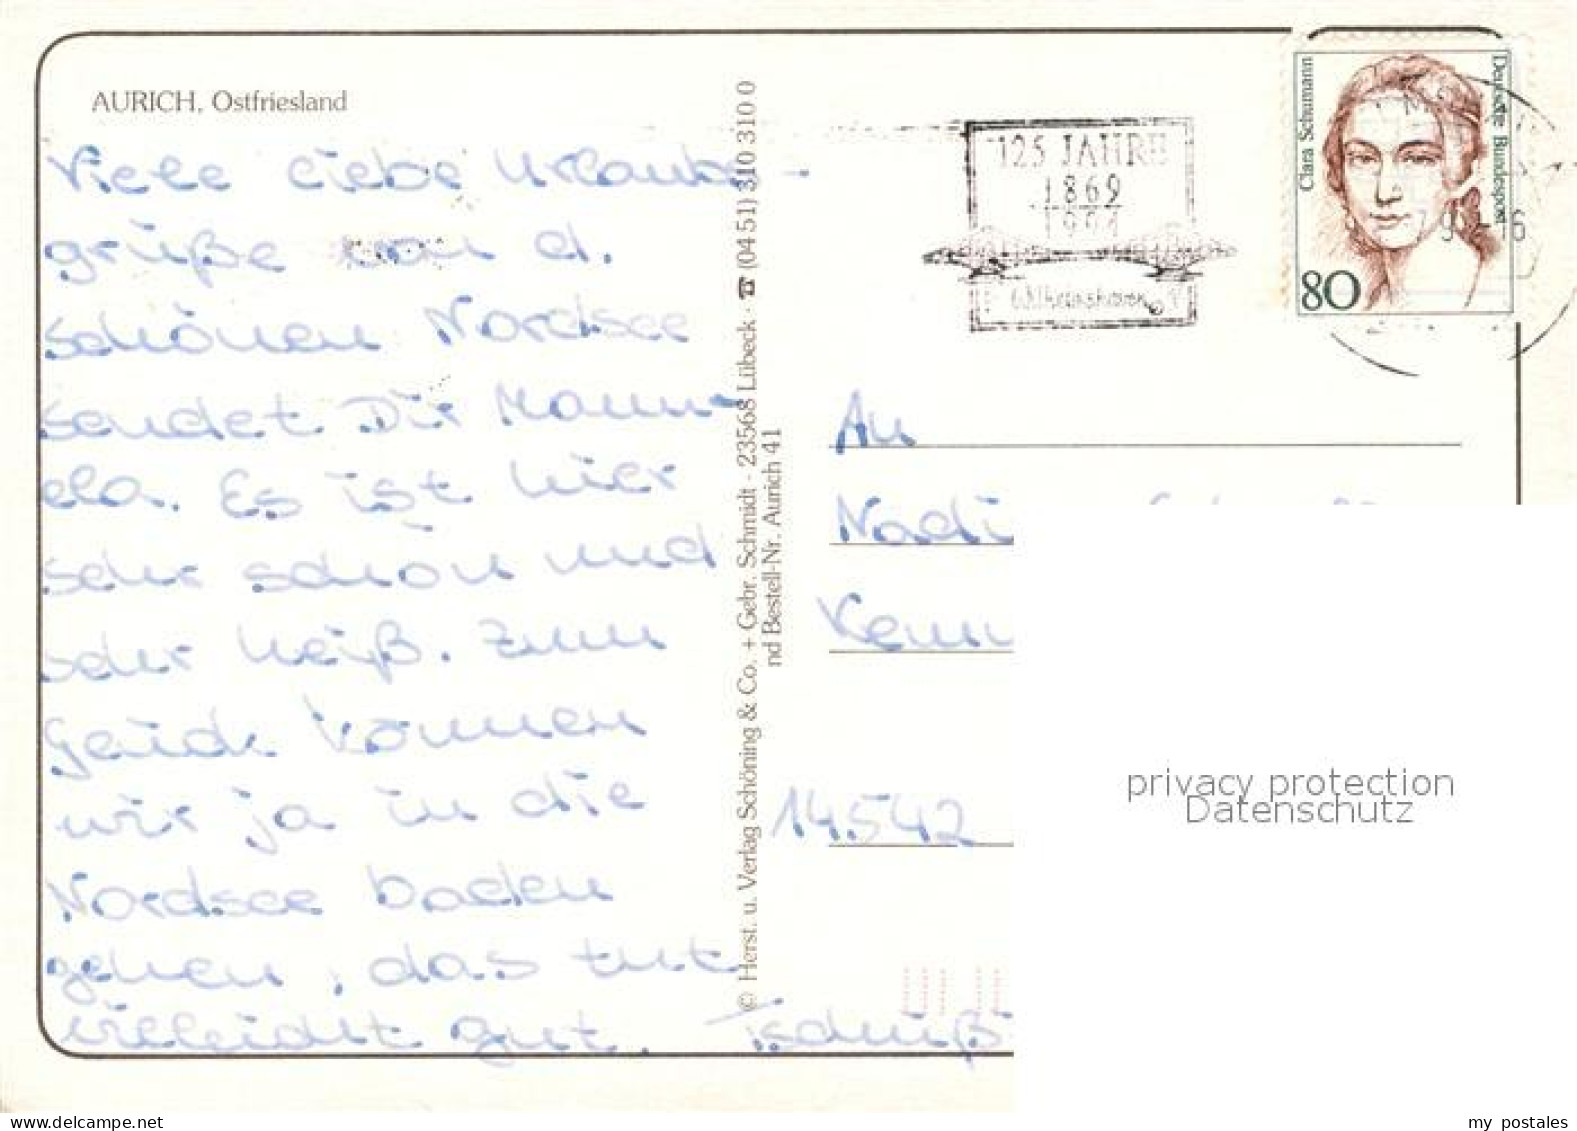 AURICH, Ostfriesland
Viele liebe Urlaubs-
grüße von d.
schönen Nordsee
sendet Dir Manu-
ela. Es ist hier
sehr schön und
sehr heiß. Zum
Glück können
wir ja in die
Nordsee baden
gehen, das tut
vielleicht gut. Tschüß
© Herst. u. Verlag Schöning & Co. + Gebr. Schmidt · 23568 Lübeck · ☎ (04 51) 310 310 0
nd Bestell-Nr. Aurich 41
125 JAHRE
1869
1994
Wilhelmshaven
Clara Schumann
Deutsche Bundespost
80
An
Nadi
14542
privacy protection
Datenschutz
my postales